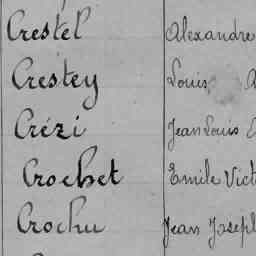 Crestel Alexandre
Crestey Louis A
Crézi Jean Louis
Crochet Emile Vict
Crochu Jean Joseph